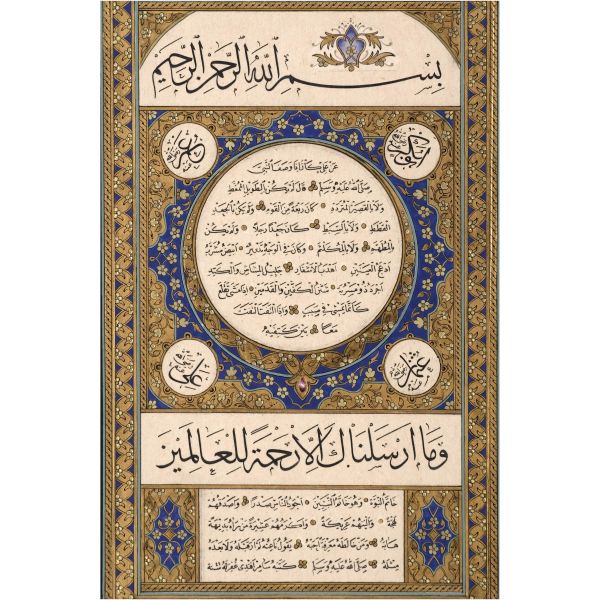 بسم الله الرحمن الرحيم
ابو بكر
عمر
عن علي كان اذا وصف النبي
صلى الله عليه وسلم قال لم يكن بالطويل الممغط
ولا بالقصير المتردد كان ربعة من القوم ولم يكن بالجعد
القطط ولا بالسبط كان جعدا رجلا ولم يكن
بالمطهم ولا بالمكلثم وكان في الوجه تدوير ابيض مشرب
ادعج العينين اهدب الاشفار جليل المشاش والكتد
اجرد ذو مسربة شثن الكفين والقدمين اذا مشى تقلع
كانما يمشي في صبب واذا التفت التفت
معا بين كتفيه
عثمان
علي
وما ارسلناك الا رحمة للعالمين
خاتم النبوة وهو خاتم النبيين اجود الناس صدرا واصدقهم
لهجة والينهم عريكة واكرمهم عشيرة من رآه بديهة
هابه ومن خالطه معرفة احبه يقول ناعته لم ار قبله ولا بعده
مثله صلى الله عليه وسلم كتبه